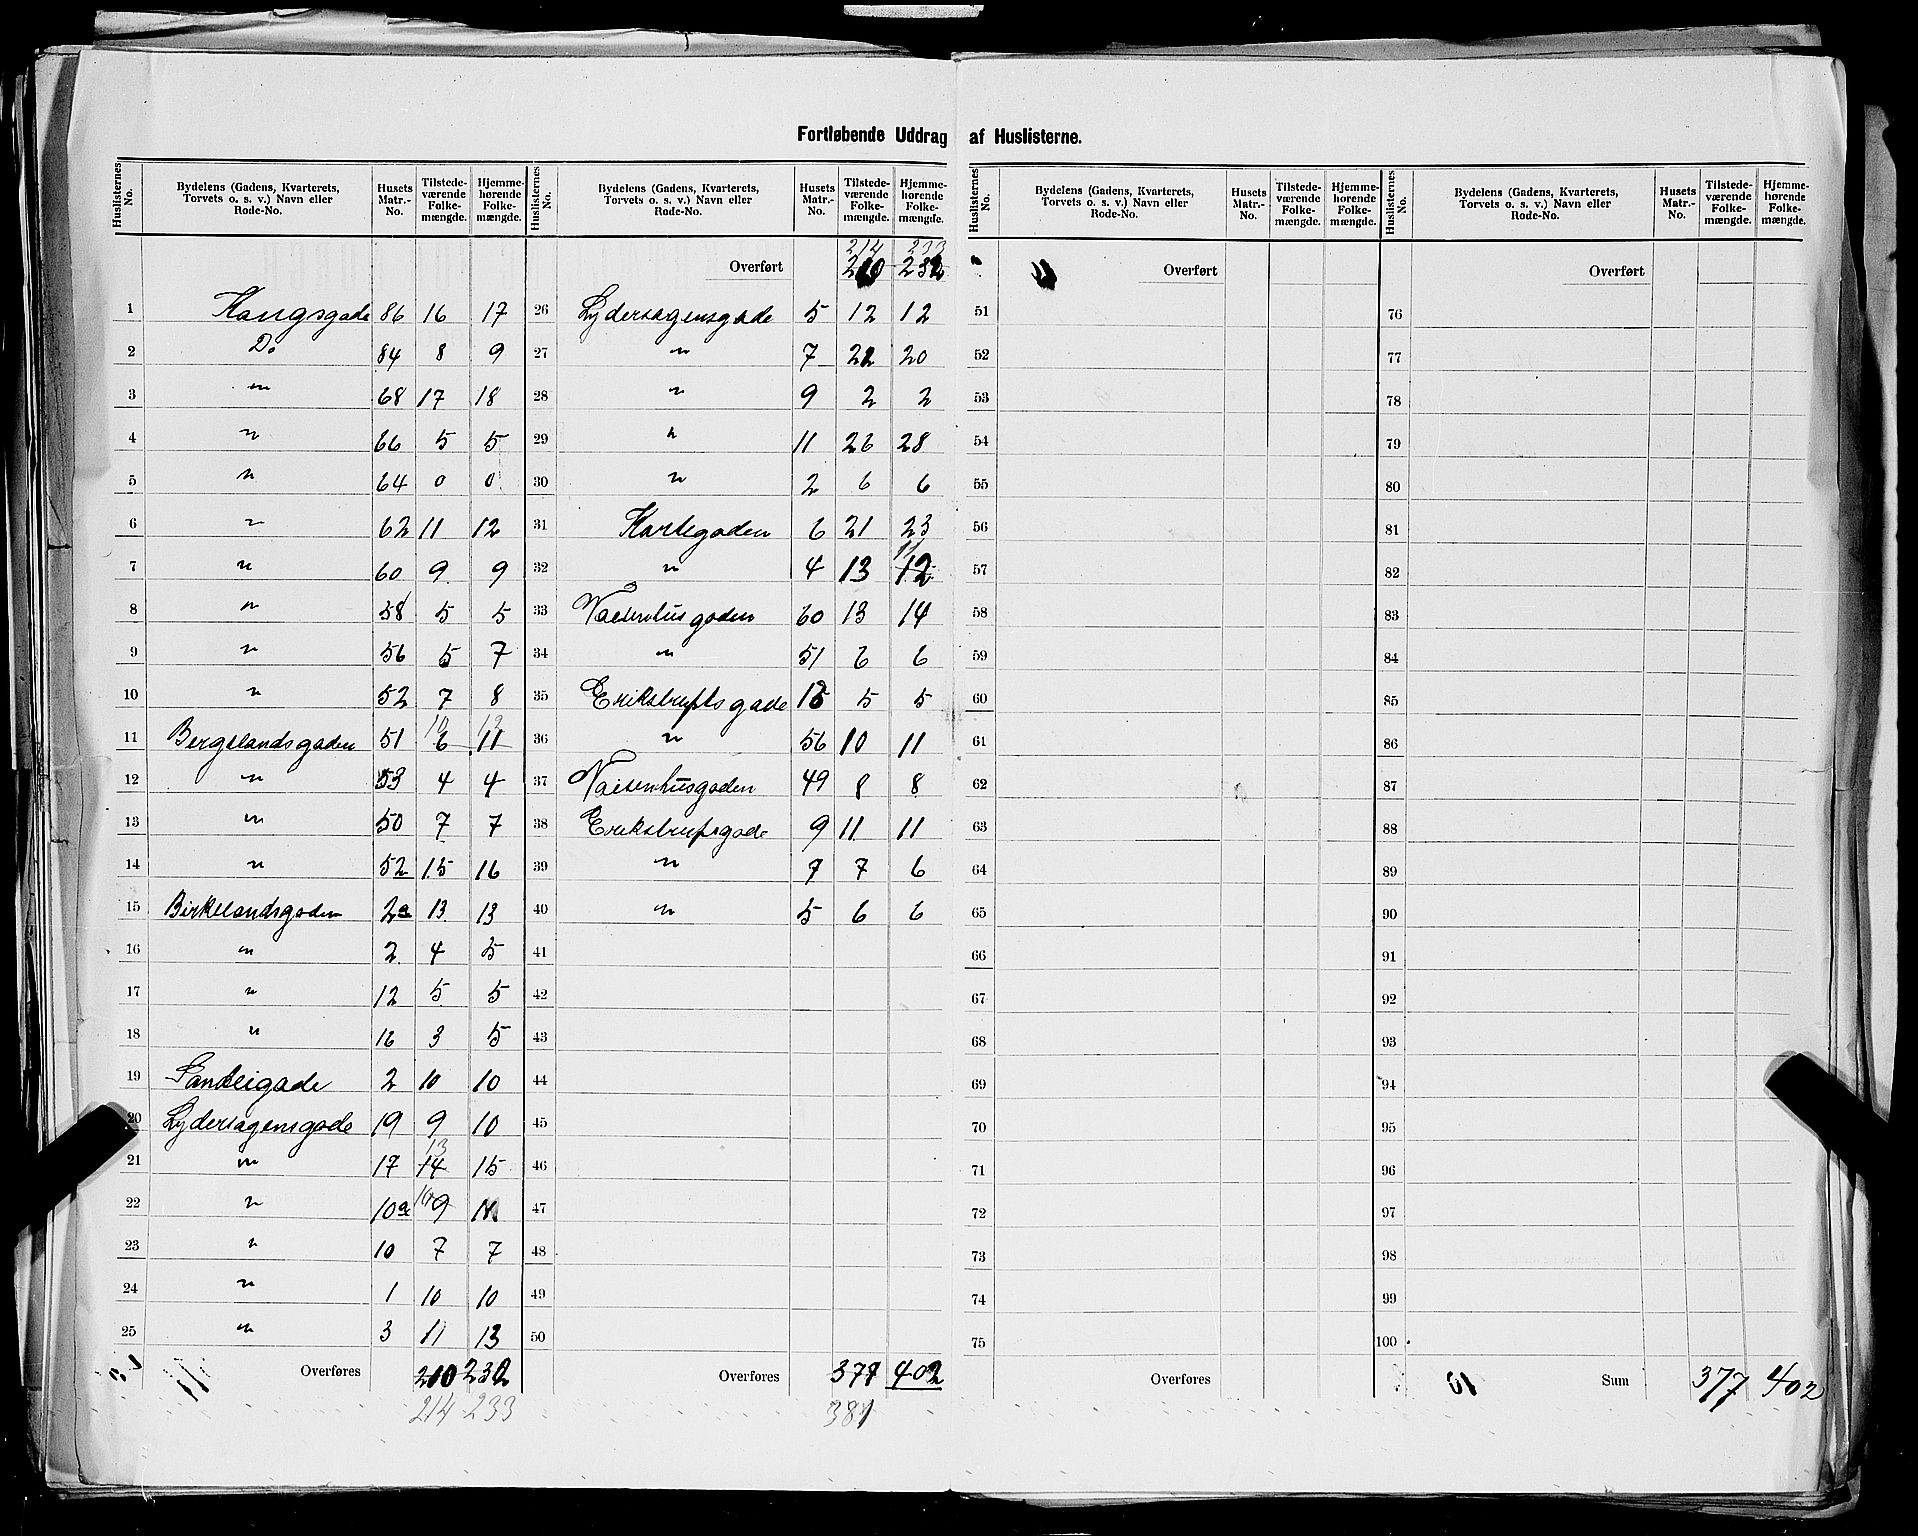 Fortløbende Uddrag af Huslisterne.
Huslisternes No. | Bydelens (Gadens, Kvarterets, Torvets o. s. v.) Navn eller Rode-No. | Husets Matr.-No. | Tilstede-værende Folke-mængde. | Hjemme-hørende Folke-mængde.
1 Kongsgade 86 16 17
2 Do 84 8 9
3 " 68 17 18
4 " 66 5 5
5 " 64 0 0
6 " 62 11 12
7 " 60 9 9
8 " 58 5 5
9 " 56 5 7
10 " 52 7 8
11 Bergelandsgaden 51 10 6 12 11
12 " 53 4 4
13 " 50 7 7
14 " 52 15 16
15 Birkelandsgaden 2a 13 13
16 " 2 4 5
17 " 12 5 5
18 " 16 3 5
19 Sandeigade 2 10 10
20 Lydersagensgade 19 9 10
21 " 17 13 14 15
22 " 10a 10 9 11
23 " 10 7 7
24 " 1 10 10
25 " 3 11 13
Overføres 210 232
214 233
Huslisternes No. | Bydelens (Gadens, Kvarterets, Torvets o. s. v.) Navn eller Rode-No. | Husets Matr.-No. | Tilstede-værende Folke-mængde. | Hjemme-hørende Folke-mængde.
214 233
Overført 210 232
26 Lydersagensgade 5 12 12
27 " 7 22 20
28 " 9 2 2
29 " 11 26 28
30 " 2 6 6
31 Kortegaden 6 21 23
32 " 4 13 11 12
33 Vaisenhusgaden 60 13 14
34 " 51 6 6
35 Erikstrupsgade 5 5
36 " 56 10 11
37 Vaisenhusgaden 49 8 8
38 Erikstrupsgade 9 11 11
39 " 7 7 6
40 " 5 6 6
41
42
43
44
45
46
47
48
49
50
Overføres 377 402
381
Huslisternes No. | Bydelens (Gadens, Kvarterets, Torvets o. s. v.) Navn eller Rode-No. | Husets Matr.-No. | Tilstede-værende Folke-mængde. | Hjemme-hørende Folke-mængde.
Overført
51
52
53
54
55
56
57
58
59
60
61
62
63
64
65
66
67
68
69
70
71
72
73
74
75
Overføres
Huslisternes No. | Bydelens (Gadens, Kvarterets, Torvets o. s. v.) Navn eller Rode-No. | Husets Matr.-No. | Tilstede-værende Folke-mængde. | Hjemme-hørende Folke-mængde.
Overført
76
77
78
79
80
81
82
83
84
85
86
87
88
89
90
91
92
93
94
95
96
97
98
99
100
Sum 377 402